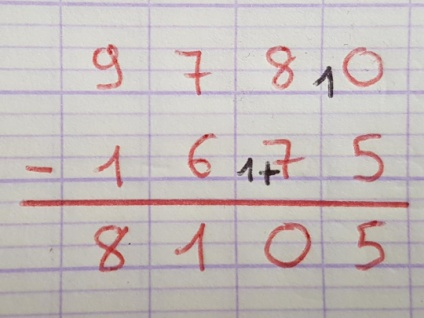 9 7 8 10
- 1 6 1+7 5
8 1 0 5